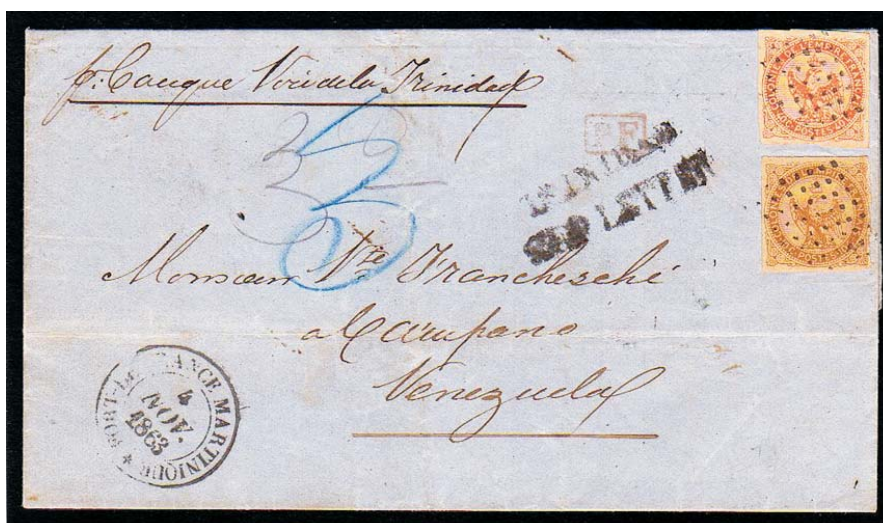 p: Cauque Voie de la Trinidad
P.F.
TRINIDAD
SHIP LETTER
5
Monsieur Vte Francheschi
a Carupano
Venezuela
FORT-DE-FRANCE MARTINIQUE
4
NOV.
1863